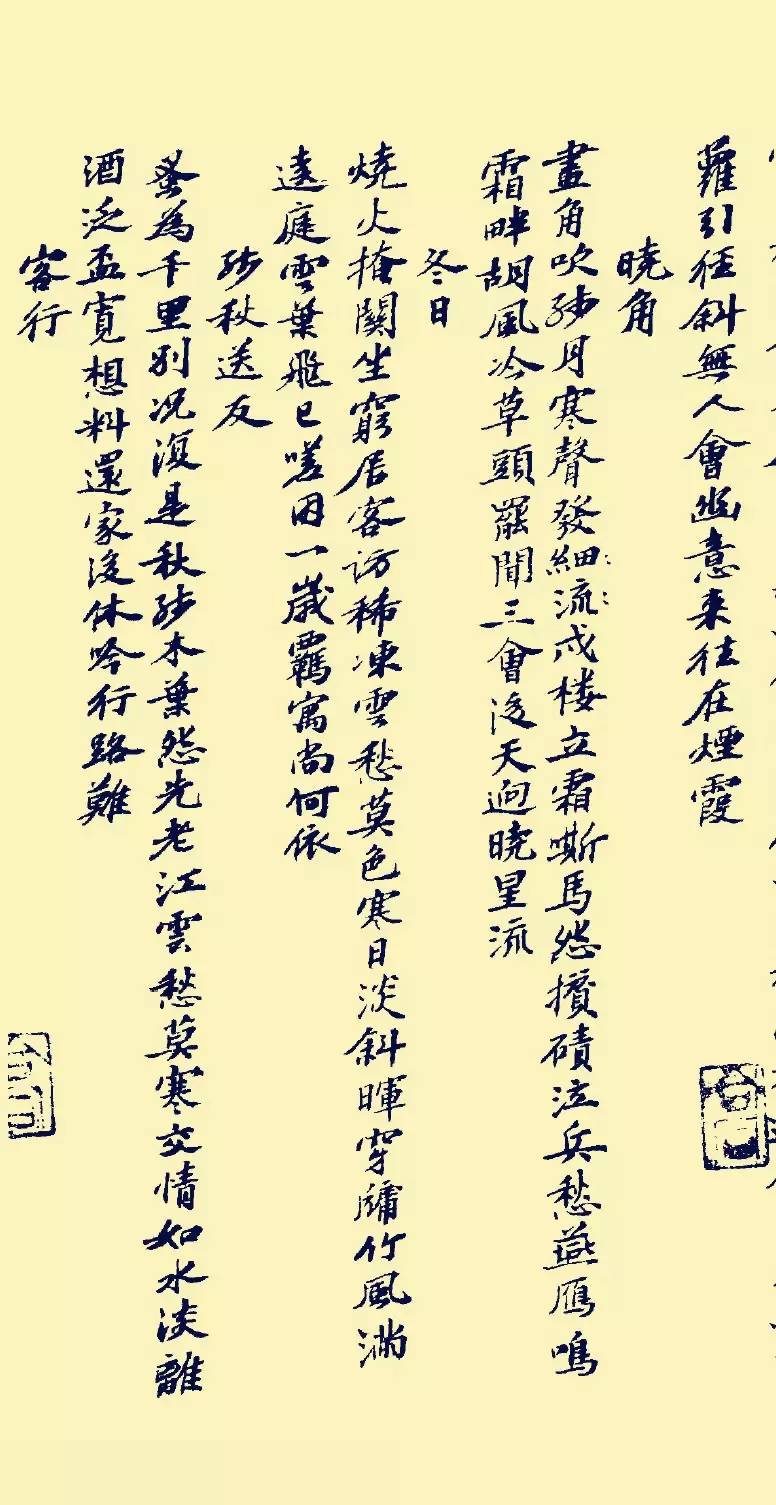 蘿引徑斜無人會幽意來往在煙霞
曉角
畫角吹殘月寒聲發細〻流〻戍楼立霜嘶馬怨攢磧泣兵愁燕鴈鳴
霜畔胡風冷草頭罷聞三會後天迥曉星流
冬日
燒火掩關坐窮居客訪稀凍雲愁莫色寒日淡斜暉穿牖竹風滿
遶庭雲葉飛已嗟周一歲羈寓尚何依
殘秋送友
蚤為千里別况復是秋殘木葉怨先老江雲愁莫寒交情如水淡離
酒泛盃寬想料還家後休吟行路難
客行